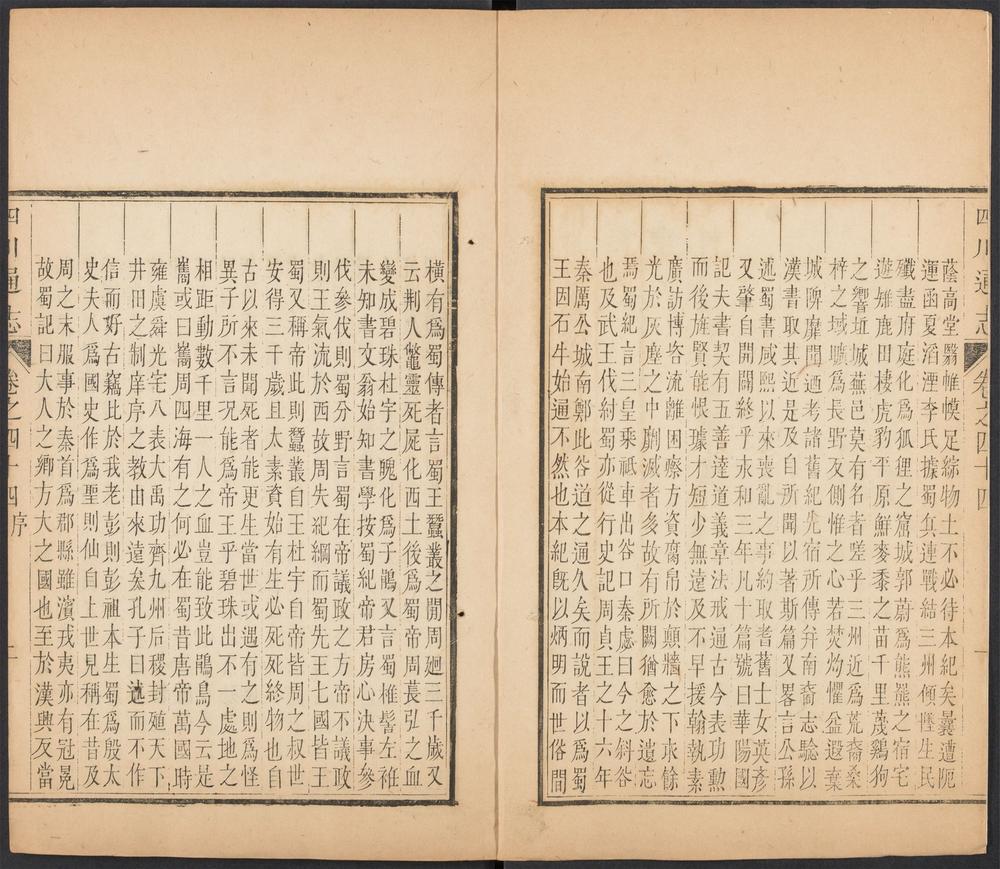 四川通志 卷之四十四
蔭高堂翳帷幙足綜物土不必待本紀矣曩遭阨
運函夏滔湮李氏據蜀兵連戰結三州傾墜生民
殲盡府庭化爲狐狸之窟城郭蔚爲熊羆之宿宅
遊雉鹿田棲虎豹平原鮮麥黍之苗千里蔑鷄狗
之響坵城蕪邑莫有名者嗟乎三州近爲荒裔桑
梓之域曠爲長野反側惟之心若焚灼懼益遐棄
城陴靡聞迺考諸舊紀先宿所傳弁南裔志驗以
漢書取其近是及自所聞以著斯篇又畧言公孫
述蜀書咸熙以來喪亂之事約取耆舊士女英彥
又肇自開闢終乎永和三年凡十篇號曰華陽國
記夫書契有五善達道義章法戒通古今表功勲
而後旌賢能恨璩才短少無遠及不早援翰執素
廣訪博咨流離困瘵方資腐帛於顛牆之下求餘
光於灰塵之中劘滅者多故有所闕猶愈於遺忘
焉蜀紀言三皇乘祗車出谷口秦虙曰今之斜谷
也及武王伐紂蜀亦從行史記周貞王之十六年
秦厲公城南鄭此谷道之通久矣而說者以爲蜀
王因石牛始通不然也本紀旣以炳明而世俗間
橫有爲蜀傳者言蜀王蠶叢之間周廻三千歲又
云荆人鼈靈死屍化西土後爲蜀帝周萇弘之血
變成碧珠杜宇之魄化爲子鵑又言蜀椎髻左袵
未知書文翁始知書學按蜀紀帝君房心決事參
伐參伐則蜀分野言蜀在帝議政之方帝不議政
則王氣流於西故周失紀綱而蜀先王七國皆王
蜀又稱帝此則蠶叢自王杜宇自帝皆周之叔世
安得三千歲且太素資始有生必死死終物也自
古以來未聞死者能更生當世或遇有之則爲怪
異子所不言況能爲帝王乎碧珠出不一處地之
相距動數千里一人之血豈能致此鵑鳥今云是
巂或曰巂周四海有之何必在蜀昔唐帝萬國時
雍虞舜光宅八表大禹功齊九州后稷封殖天下
井田之制庠序之教由來遠矣孔子曰述而不作
信而好古竊比於我老彭則彭祖本生蜀爲殷太
史夫人爲國史作爲聖則仙自上世見稱在昔及
周之末服事於秦首爲郡縣雖濱戎夷亦有冠冕
故蜀記曰大人之鄉方大之國也至於漢興反當
四川通志 卷之四十四 序 二